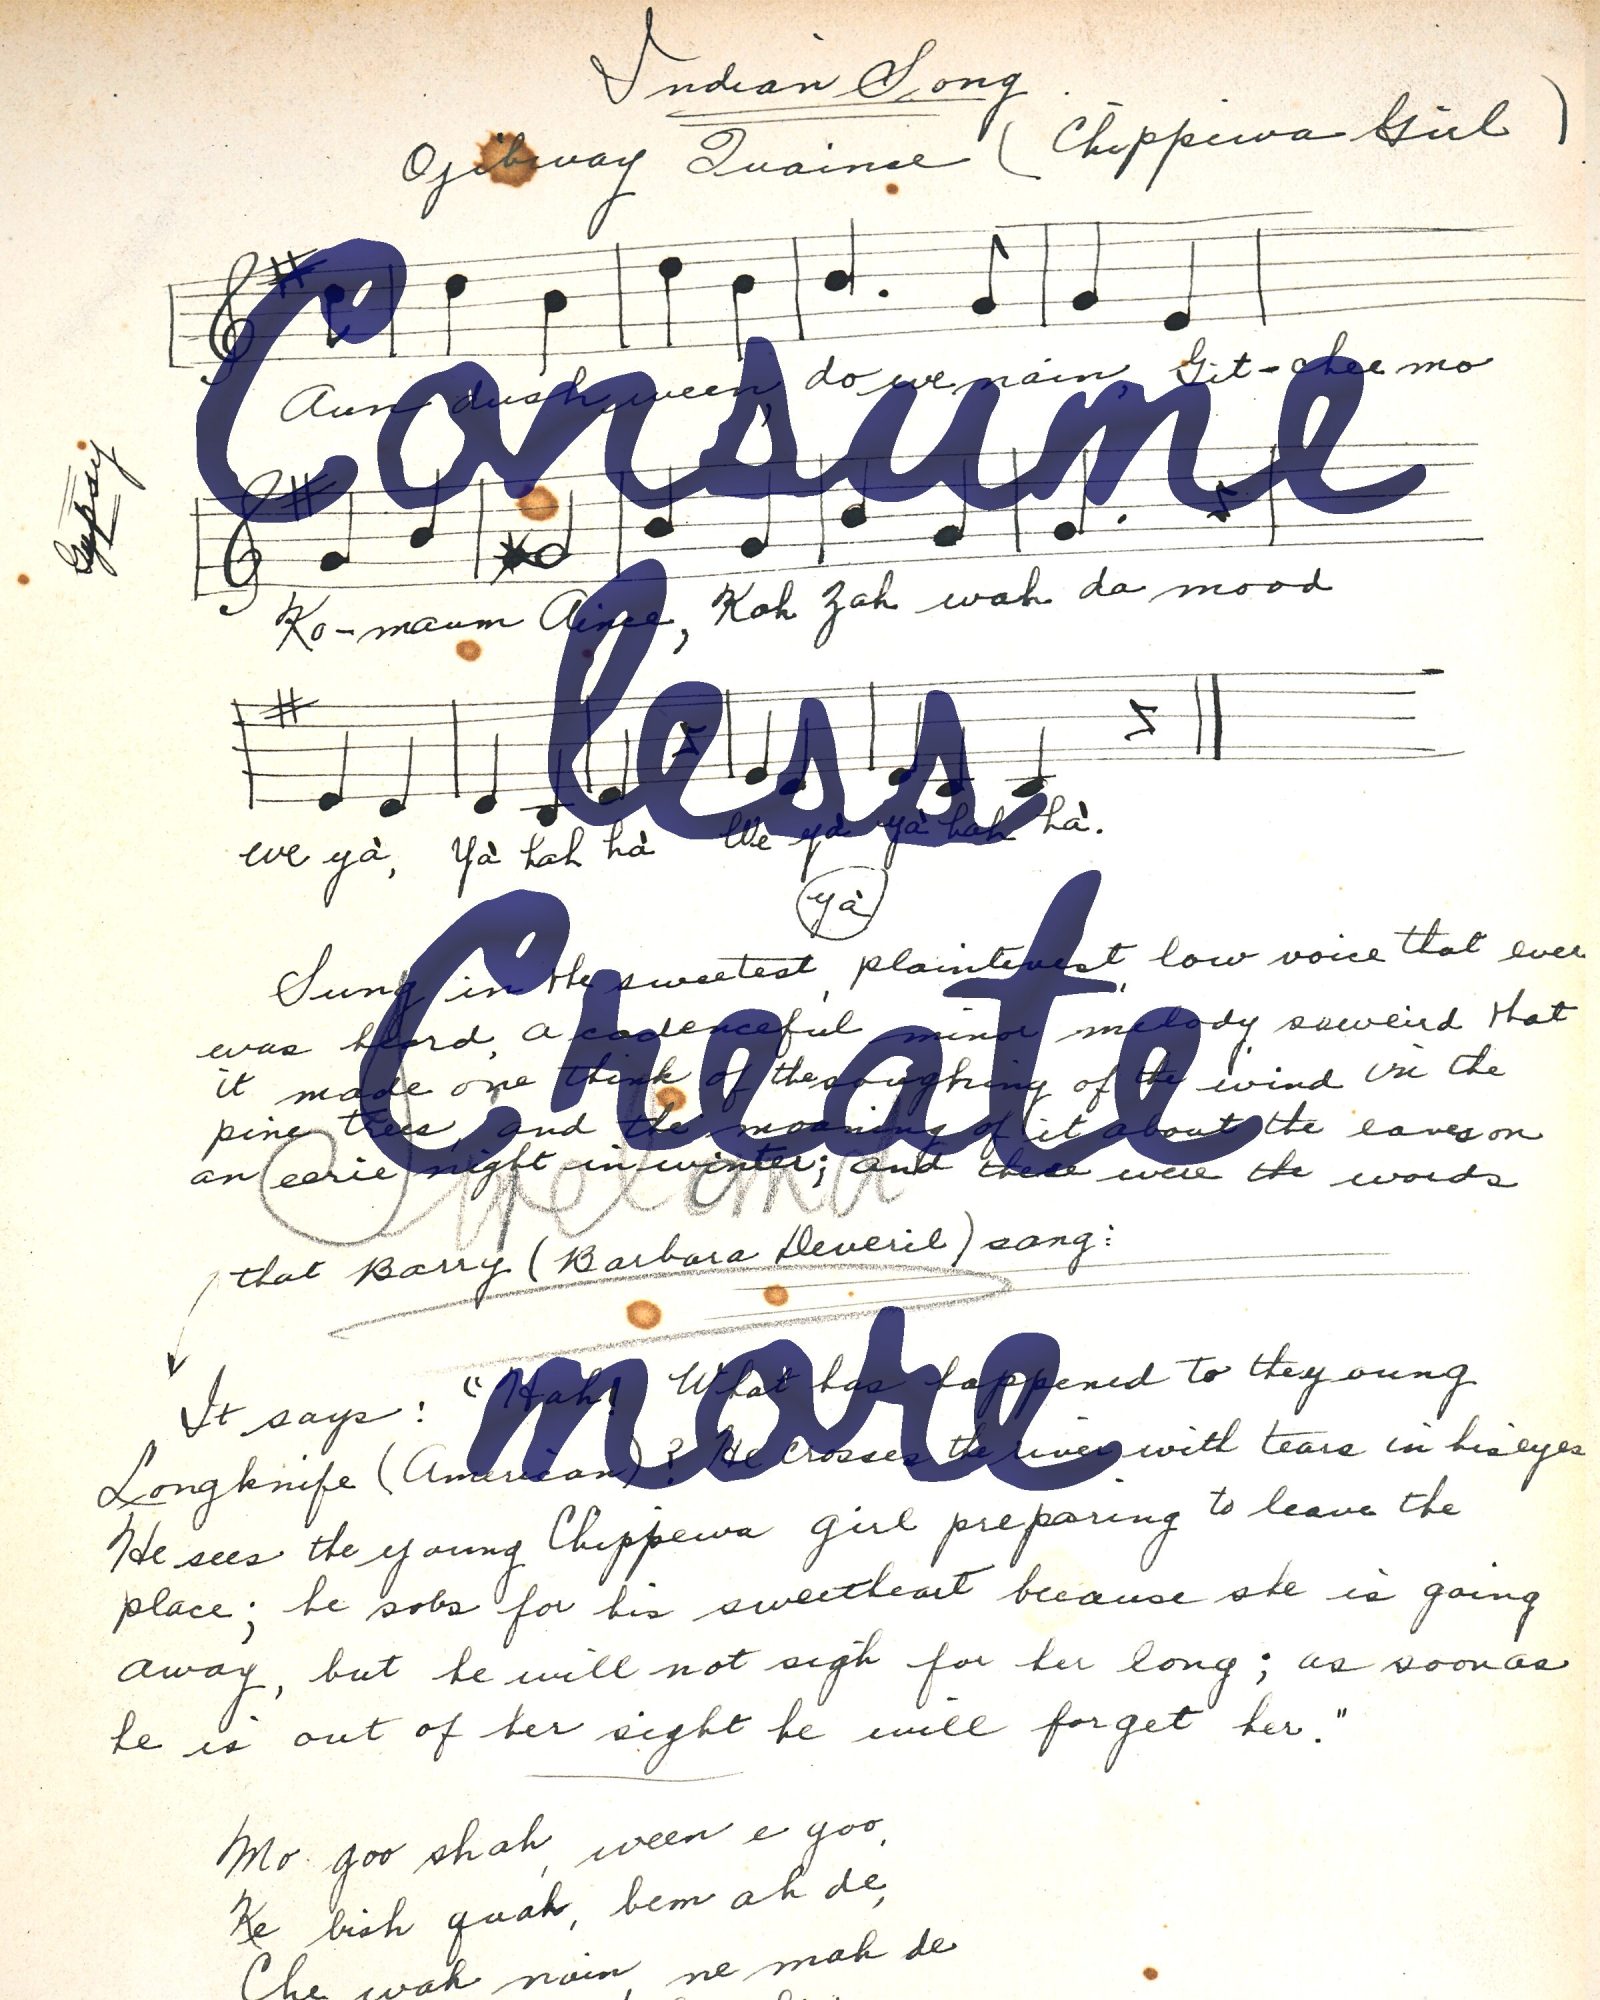 Indian Song
Ojibway Quaince (Chippewa Girl)
Aun dush ween, do we nain, Git-chee mo
Gypsy
Ko-maum Aince, Kah Zah wah da mood
we yà, Yà hah hà We yà yà hah hà.
yà
Sung in the sweetest, plaintivest low voice that ever
was heard, a cadenceful minor melody soweird that
it made one think of the soughing of the wind in the
pine trees, and the moaning of it about the eaves on
an eerie night in winter; and these were the words
that Barry (Barbara Deveril) sang:
It says: "Hah! What has happened to the young
Longknife (American)? He crosses the river with tears in his eyes
He sees the young Chippewa girl preparing to leave the
place; he sobs for his sweetheart because she is going
away, but he will not sigh for her long; as soon as
he is out of her sight he will forget her."
Mo goo shah, ween e goo,
Ke bish quah, bem ah de,
Che wah nain, ne mah de
Consume
less
Create
more